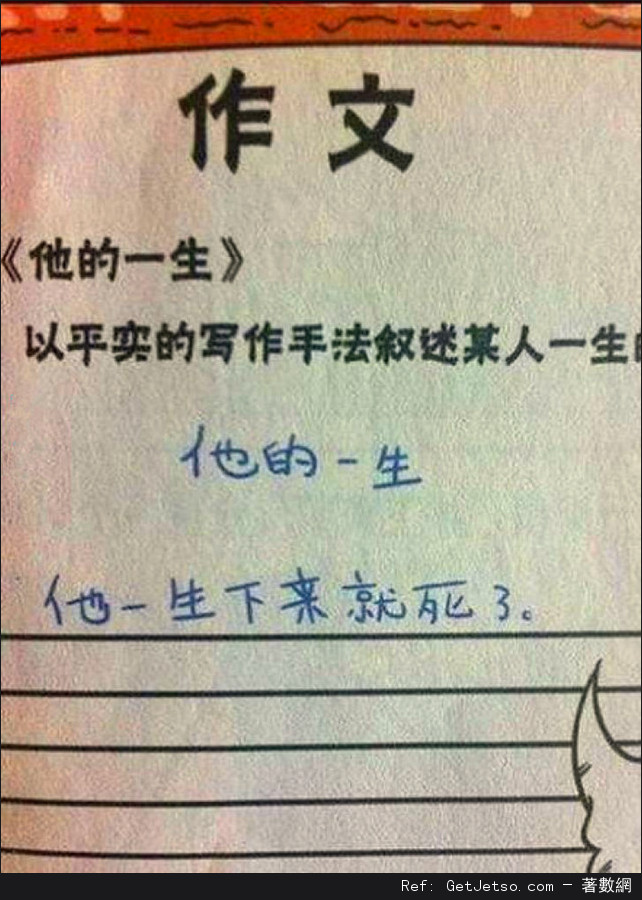 作文
《他的一生》
以平实的写作手法叙述某人一生的
他的一生
他一生下来就死了。
Ref: GetJetso.com － 著數網